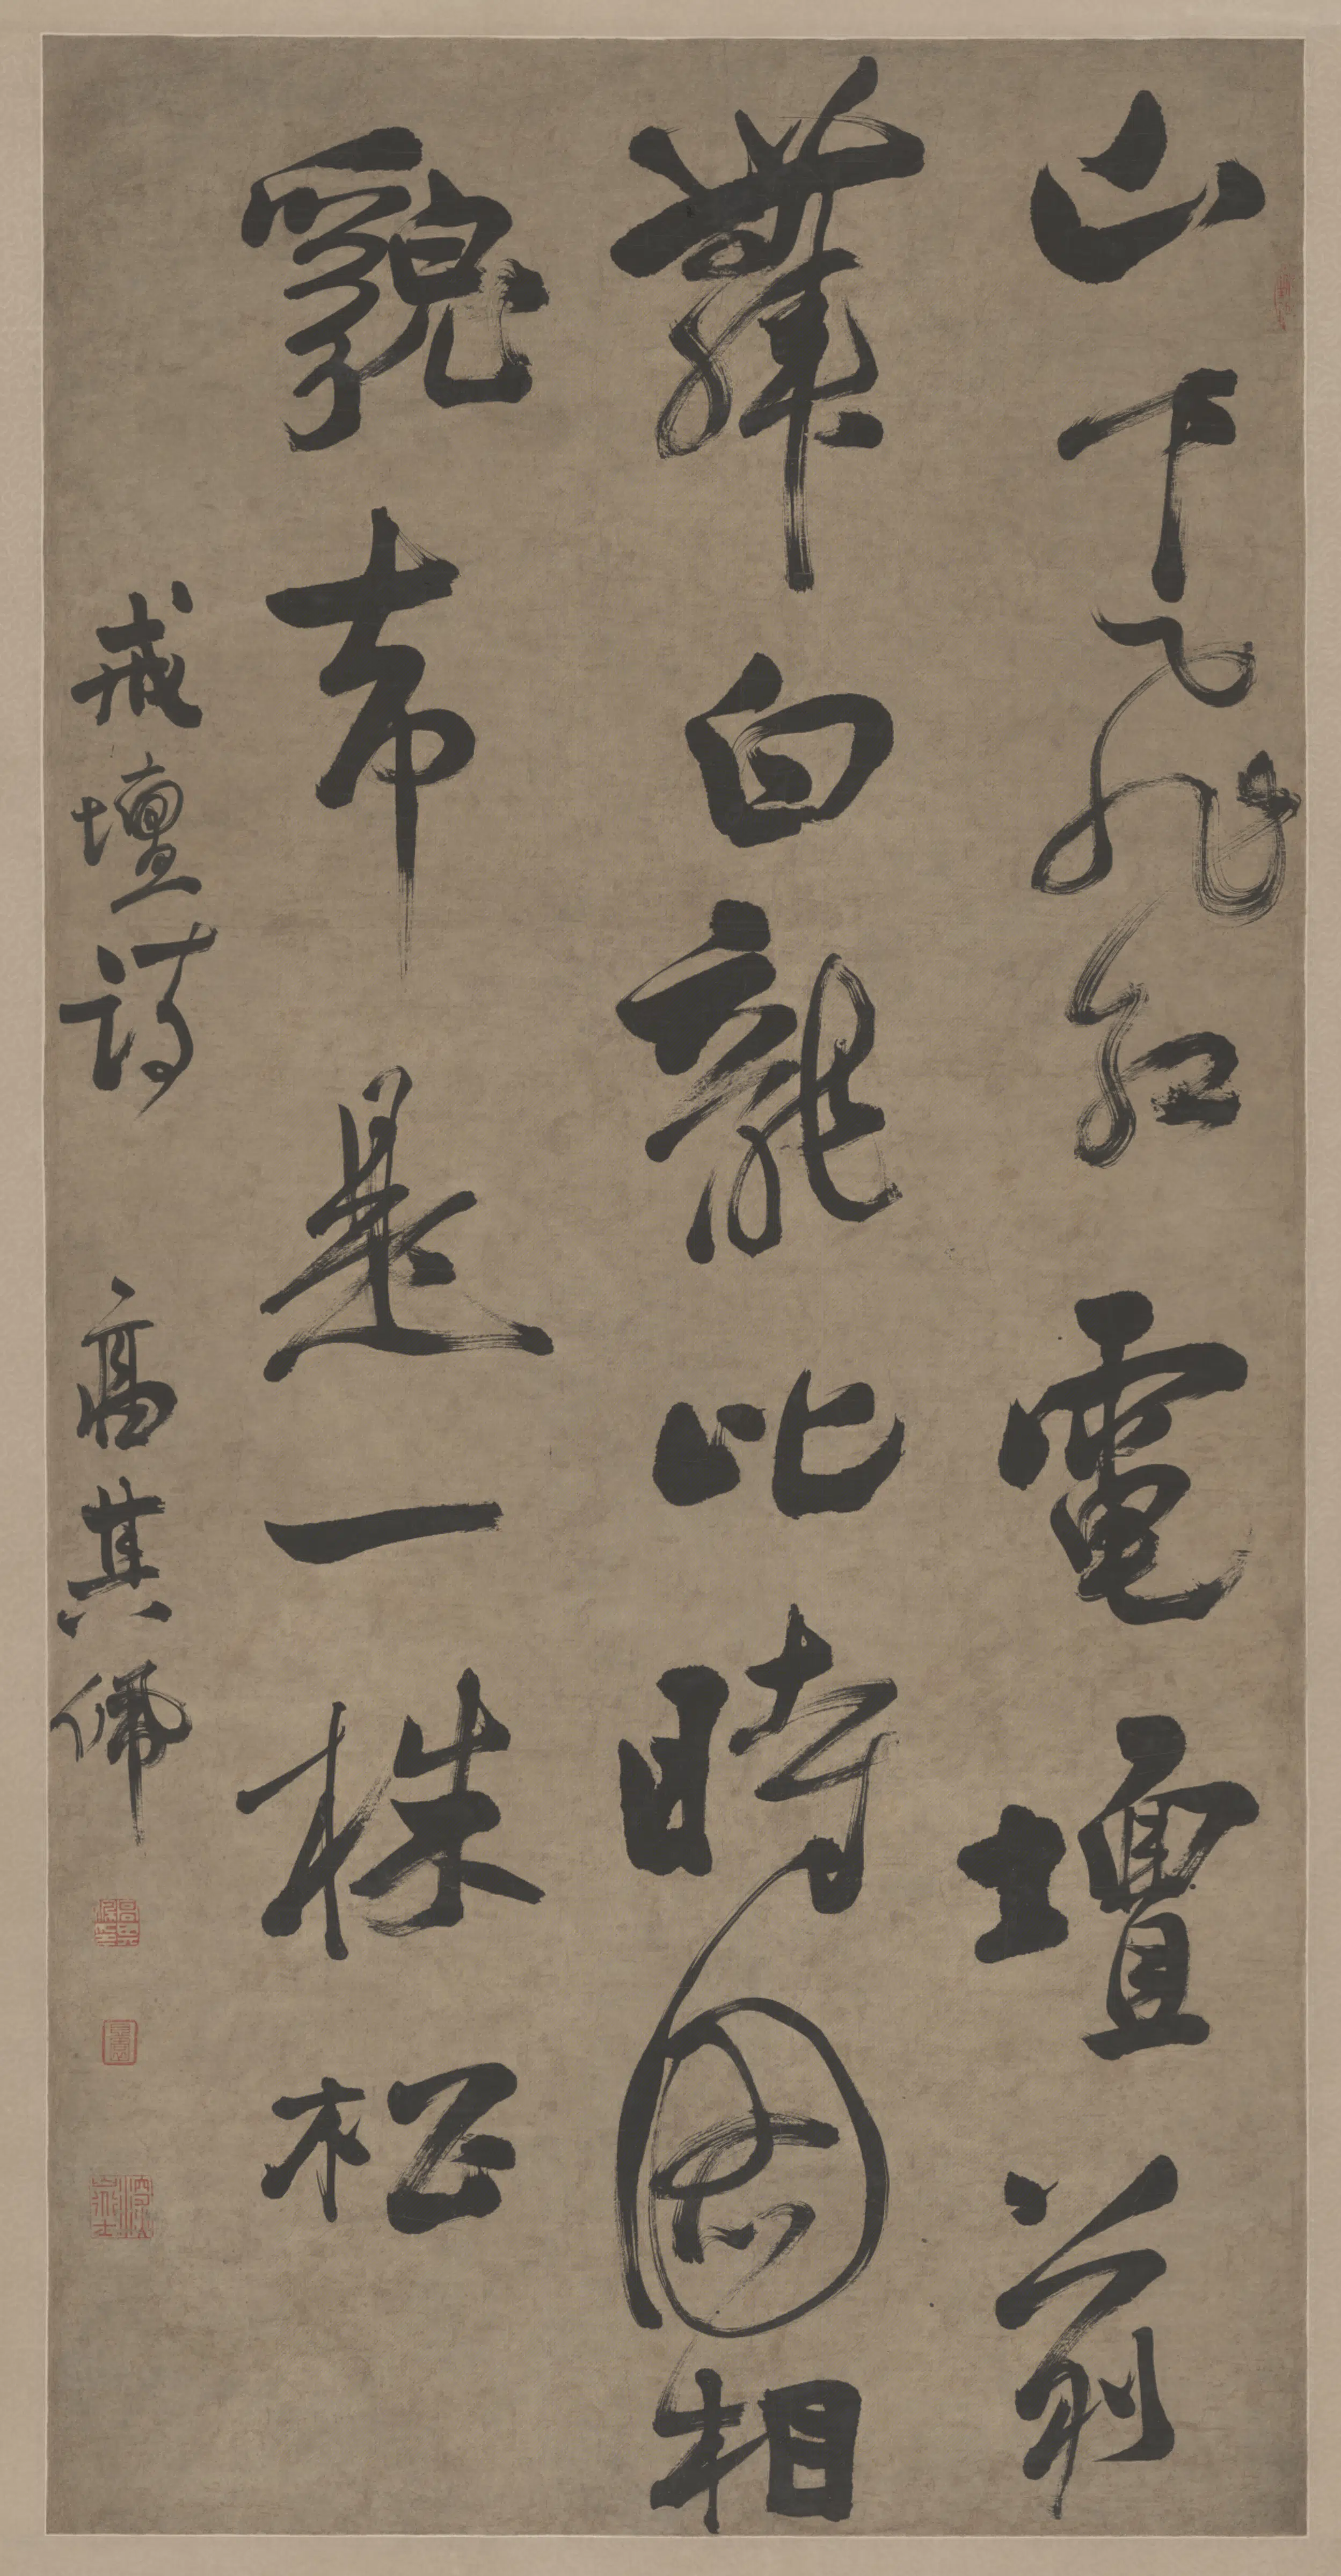 山下飛紅電壇前
舞白龍此時圖相
貌是一株松
戒壇詩 高其佩